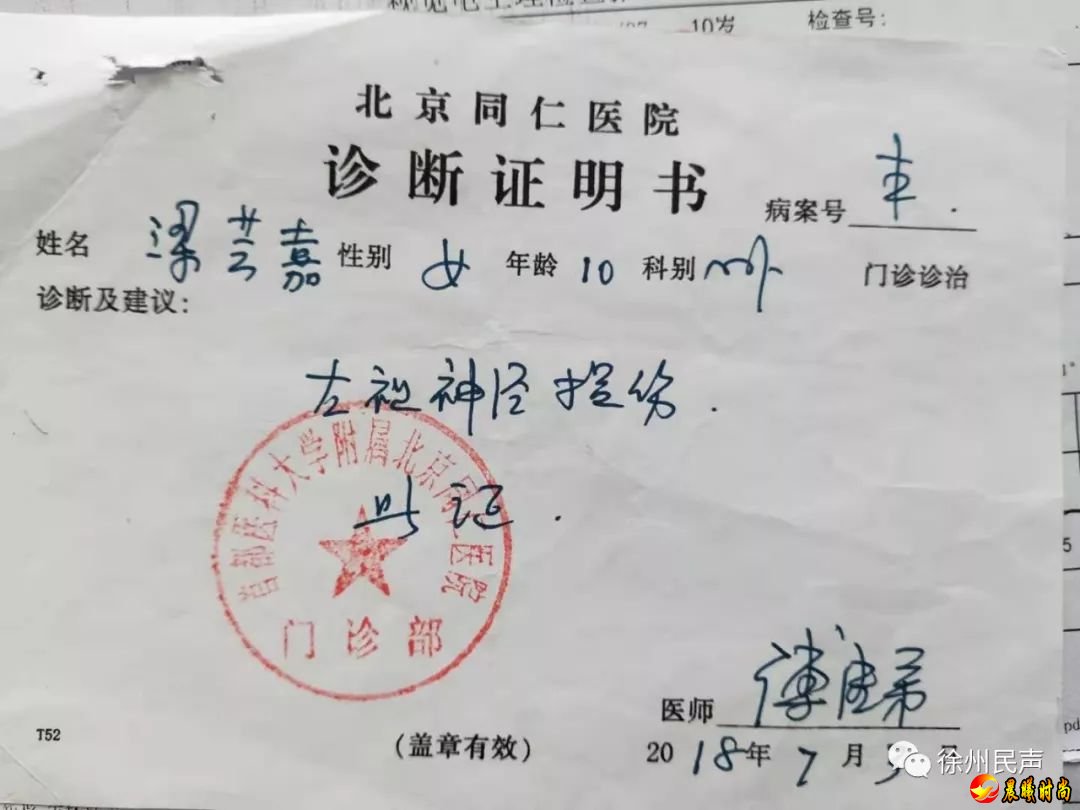 10岁 检查号:
北京同仁医院
诊断证明书
病案号
姓名 梁芸嘉 性别 女 年龄 10 科别 门诊诊治
诊断及建议:
左视神经损伤.
此证.
首都医科大学附属北京同仁医院
门诊部
医师
T52
(盖章有效)
2018年7月
徐州民声
晨曦时尚